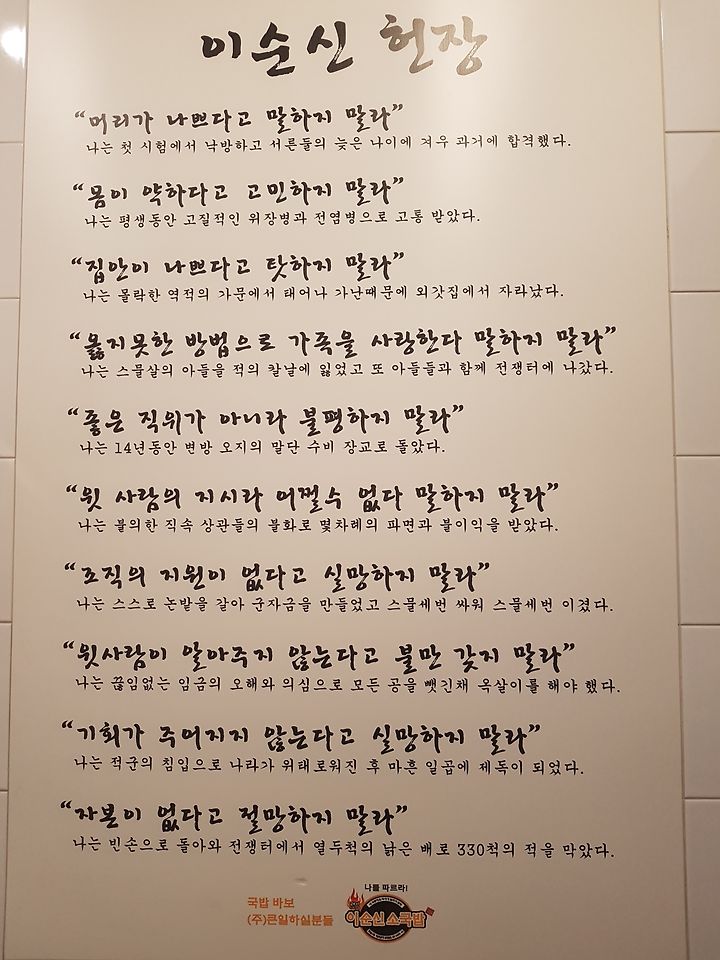 이순신 헌장
“머리가 나쁘다고 말하지 말라”
나는 첫 시험에서 낙방하고 서른둘의 늦은 나이에 겨우 과거에 합격했다.
“몸이 약하다고 고민하지 말라”
나는 평생동안 고질적인 위장병과 전염병으로 고통 받았다.
“집안이 나쁘다고 탓하지 말라”
나는 몰락한 역적의 가문에서 태어나 가난때문에 외갓집에서 자라났다.
“옳지못한 방법으로 가족을 사랑한다 말하지 말라”
나는 스물살의 아들을 적의 칼날에 잃었고 또 아들들과 함께 전쟁터에 나갔다.
“좋은 직위가 아니라 불평하지 말라”
나는 14년동안 변방 오지의 말단 수비 장교로 돌았다.
“윗 사람의 지시라 어쩔수 없다 말하지 말라”
나는 불의한 직속 상관들의 불화로 몇차례의 파면과 불이익을 받았다.
“조직의 지원이 없다고 실망하지 말라”
나는 스스로 논밭을 갈아 군자금을 만들었고 스물세번 싸워 스물세번 이겼다.
“윗사람이 알아주지 않는다고 불만 갖지 말라”
나는 끊임없는 임금의 오해와 의심으로 모든 공을 뺏긴채 옥살이를 해야 했다.
“기회가 주어지지 않는다고 실망하지 말라”
나는 적군의 침입으로 나라가 위태로워진 후 마흔 일곱에 제독이 되었다.
“자본이 없다고 절망하지 말라”
나는 빈손으로 돌아와 전쟁터에서 열두척의 낡은 배로 330척의 적을 막았다.
나를 따르라!
국밥 바보
(주)큰일하실분들
이순신 소국밥